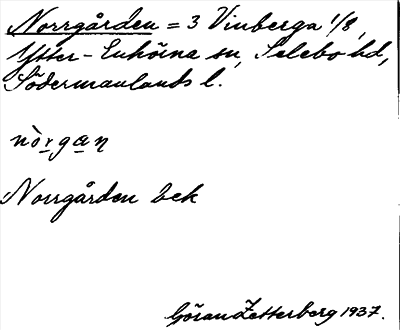 Norrgården = 3 Vinberga 1/8,
Ytter-Enhörna sn, Selebo hd,
Södermanlands l.
nòrgan
Norrgården bek
Göran Zetterberg 1937.